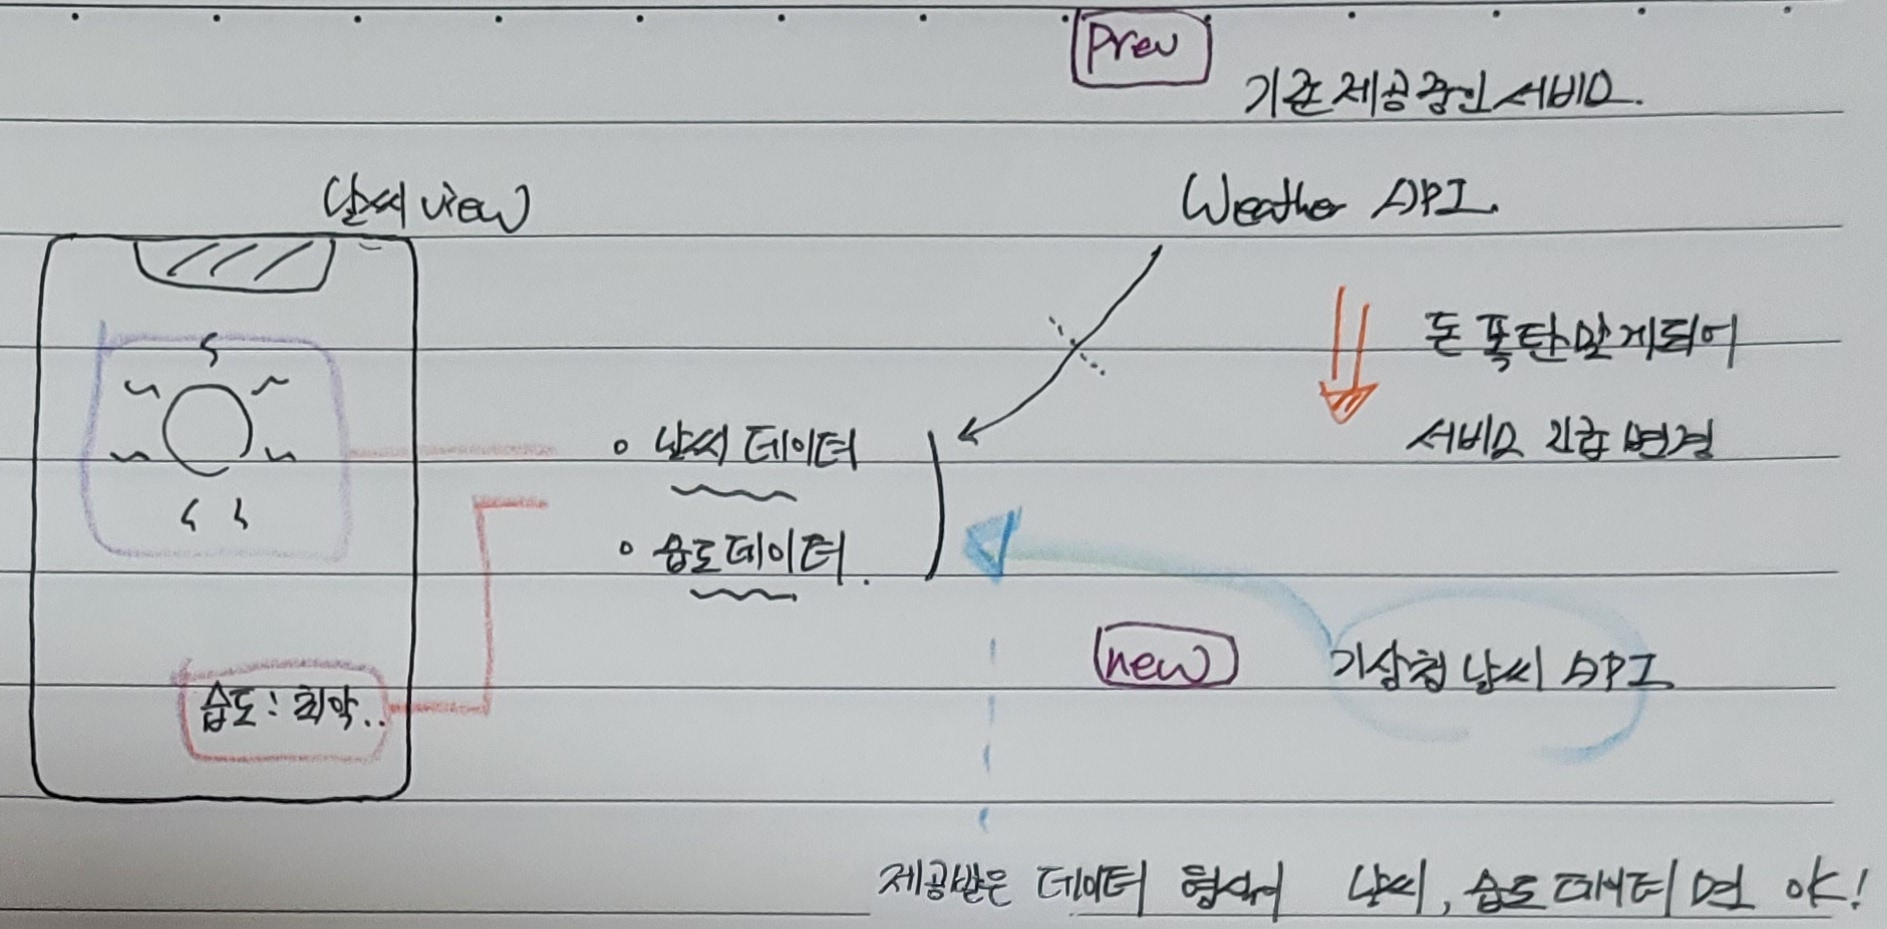 prev
기존 제공중인 서비스.
날씨 view
Weather API.
돈 폭탄 맞게되어
서비스 긴급 변경
날씨 데이터
습도 데이터.
new
기상청 날씨 API
습도 : 최악..
제공받은 데이터 형식이 날씨, 습도 데이터면 OK!